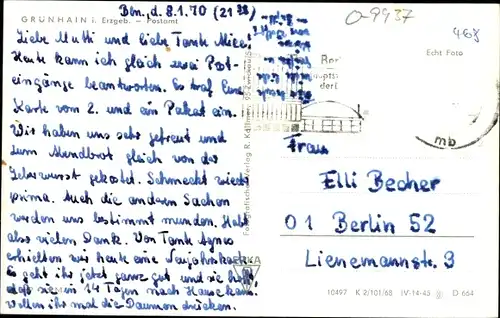 GRÜNHAIN i. Erzgeb. – Postamt
Bln., d. 8.1.70 (21 38)
Liebe Mutti und liebe Tante Mice!
Heute kann ich gleich zwei Post-
eingänge beantworten. Es traf Eure
Karte vom 2. und ein Paket ein.
Wir haben uns sehr gefreut und
zum Abendbrot gleich von der
Leberwurst gekostet. Schmeckt wieder
prima. Auch die anderen Sachen
werden uns bestimmt munden. Habt
also vielen Dank. Von Tante Agnes
erhielten wir heute eine Neujahrskarte.
Es geht ihr jetzt ganz gut und sie hofft,
daß sie in 14 Tagen nach Hause kann.
Wollen ihr mal die Daumen drücken.
Fotografischer Verlag R. Kallmer, 95 Zwickau
O-9937
468
Echt Foto
Frau
Elli Becher
01 Berlin 52
Lienemannstr. 9
mb
10497 K 2/101/68 IV-14-45 D 664